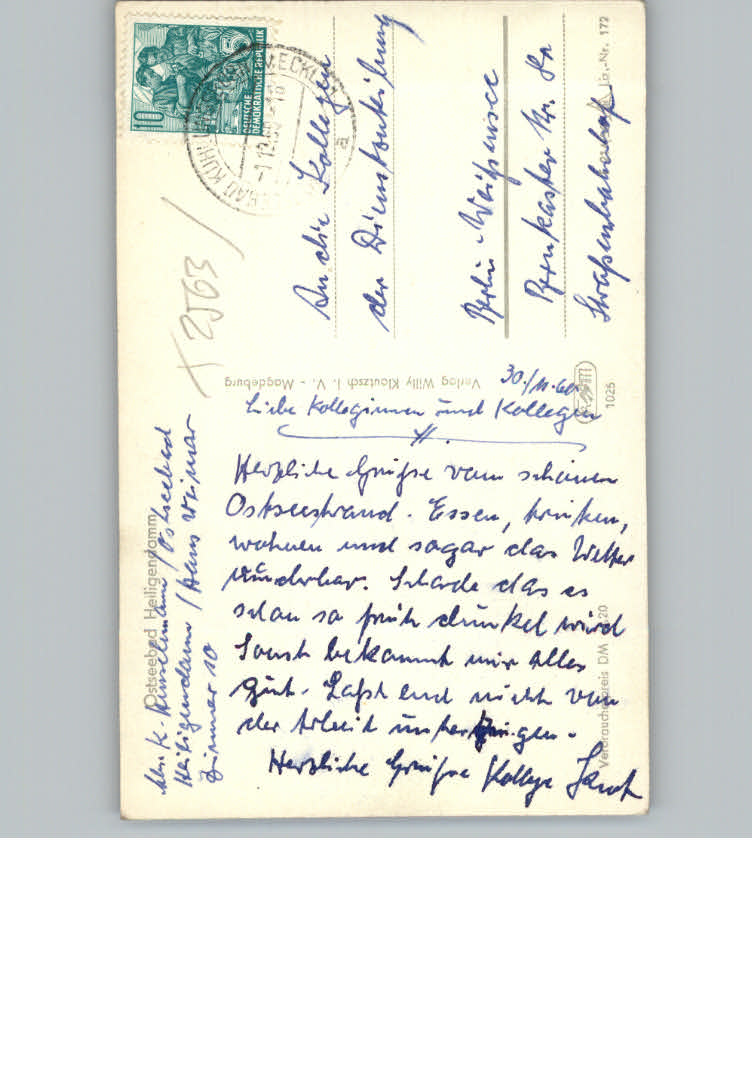 10
DEUTSCHE
DEMOKRATISCHE REPUBLIK
5
An die Kollegen
der Diensteinteilung
Berlin-Weißensee
Bernkastler Str. 80
Straßenbahnhof
Liz.-Nr. 172
1025
X 2563
Verlag Willy Klautzsch i. V. - Magdeburg
30./11.60
Liebe Kolleginnen und Kollegen
Herzliche Grüße vom schönen
Ostseestrand. Essen, trinken,
wohnen und sogar das Wetter
wunderbar. Schade das es
schon so früh dunkel wird
Sonst bekommt mir Alles
gut. Laßt euch nicht von
der Arbeit unterkriegen.
Herzliche Grüße Kollege
Ostseebad Heiligendamm
/ Ostseebad
Heiligendamm / Haus Weimar
Zimmer 10
Verbraucherpreis DM 0,20